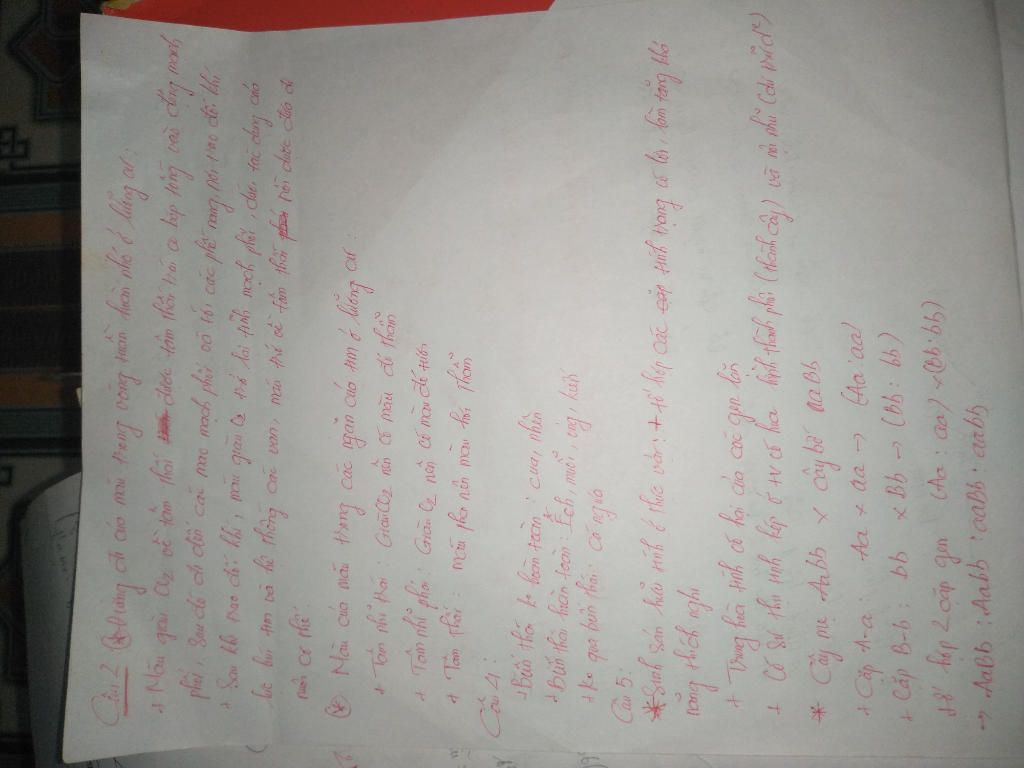 Câu 2 * Đường đi của máu trong vòng tuần hoàn nhỏ ở lưỡng cư:
+ Máu giàu O2 về tâm thất được tâm thất trái co bóp tống vào động mạch
phổi, sau đó đi đến các mao mạch phổi và tới các phế nang, nơi trao đổi khí
+ Sau khi trao đổi khí, máu giàu O2 trở lại tĩnh mạch phổi, dưới tác dụng của
lực hút tim và hệ thống các van, máu trở về tâm thất rồi được đưa đi
nuôi cơ thể.
* Màu của máu trong các ngăn của tim ở lưỡng cư:
+ Tâm nhĩ trái: Giàu CO2 nên có màu đỏ thẫm
+ Tâm nhĩ phải: Giàu O2 nên có màu đỏ tươi
+ Tâm thất: máu pha nên màu hơi thẫm
Câu 4:
+ Biến thái ko hoàn toàn: cua, nhện
+ Biến thái hoàn toàn: Ếch, muỗi, ong, kiến
+ Ko qua biến thái: cá ngựa
Câu 5:
* Sinh sản hữu tính ở thực vật: + tổ hợp các tính trạng có lợi, làm tăng khả
năng thích nghi
+ Trung hòa tính có hại của các gen lặn
+ Có sự thụ tinh kép ở tv có hoa hình thành phôi (thành cây) và nội nhũ (di nuôi dc)
* Cây mẹ AaBb × cây bố aaBb
+ Cặp A-a: Aa × aa → (Aa : aa)
+ Cặp B-b: bb × Bb → (Bb : bb)
+ Tổ hợp 2 cặp gen (Aa : aa) × (Bb : bb)
→ AaBb : Aabb : aaBb : aabb